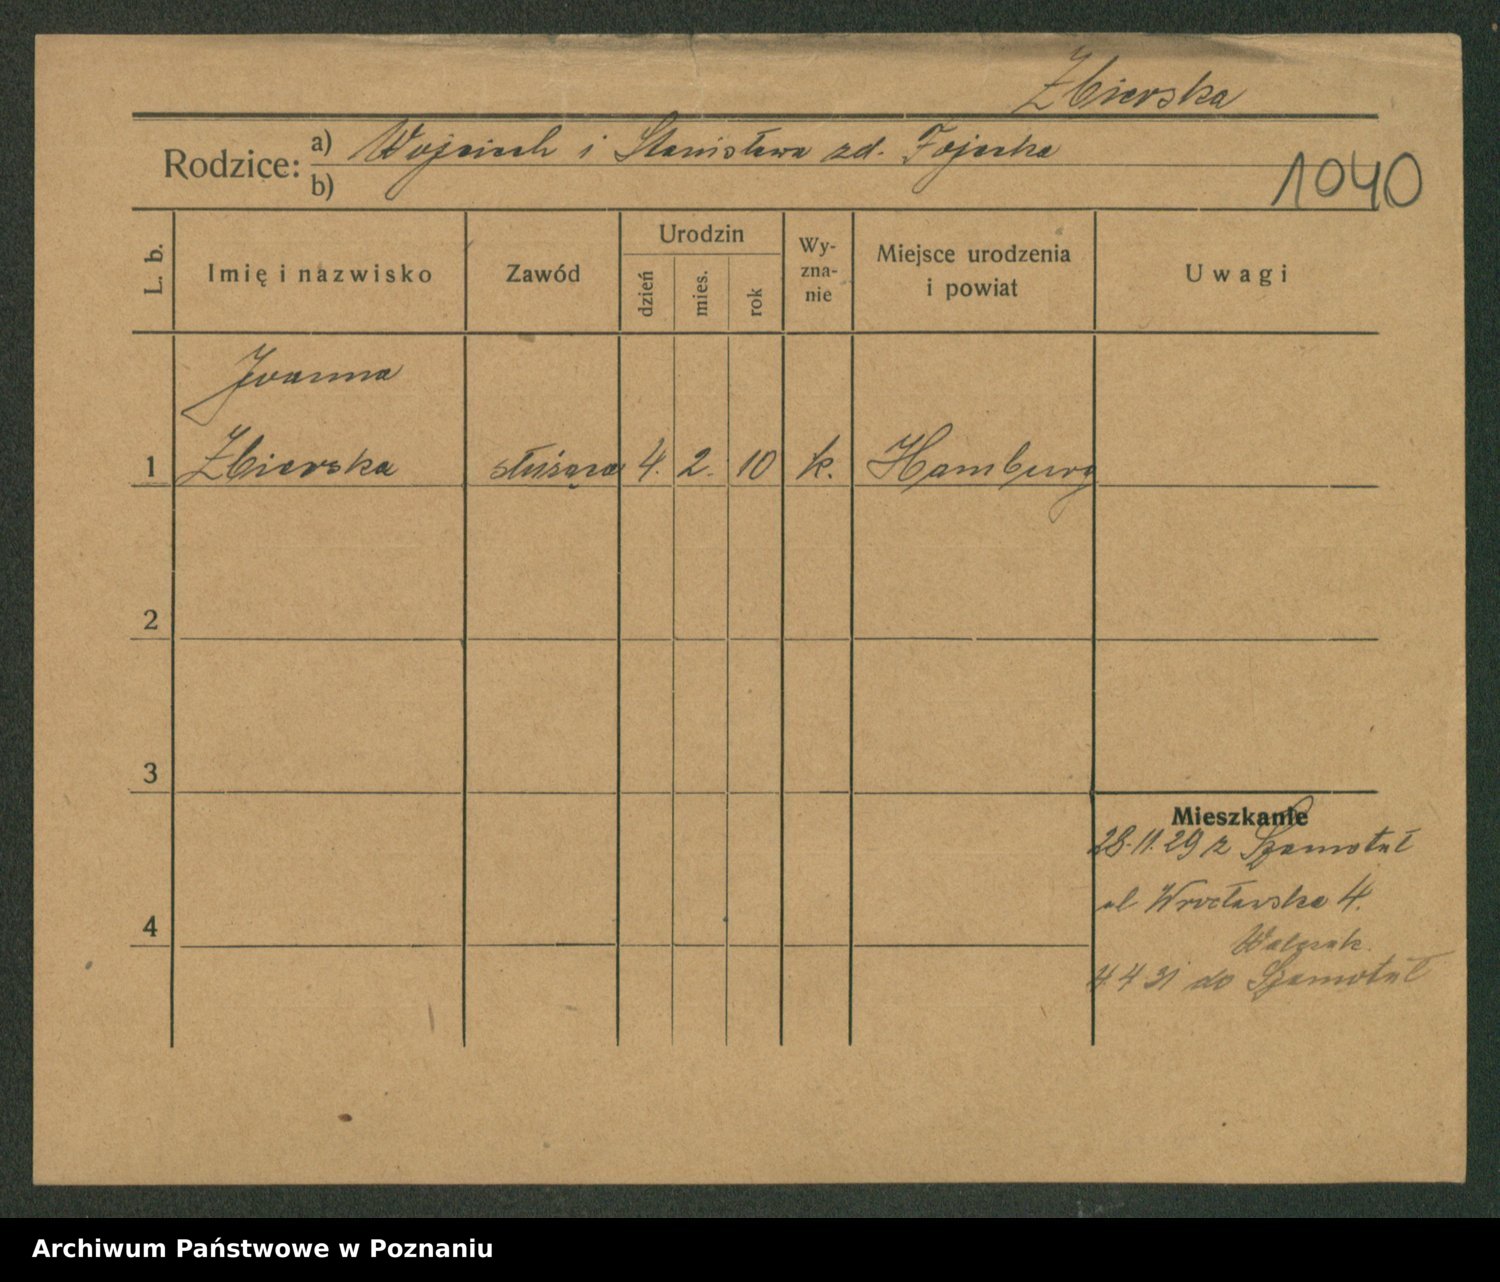 Zbierska
Rodzice: a) Wojciech i Stanisława zd. Fojecka
b)
1040
L. b.
Imię i nazwisko
Zawód
Urodzin
dzień
mies.
rok
Wy-
zna-
nie
Miejsce urodzenia
i powiat
Uwagi
Joanna
1 Zbierska służąca 4. 2. 10 k. Hamburg
2
3
Mieszkanie
28.11.29 z Szamotuł
ul Wrocławska 4.
4
Walczak.
4.4.31 do Szamotuł
Archiwum Państwowe w Poznaniu